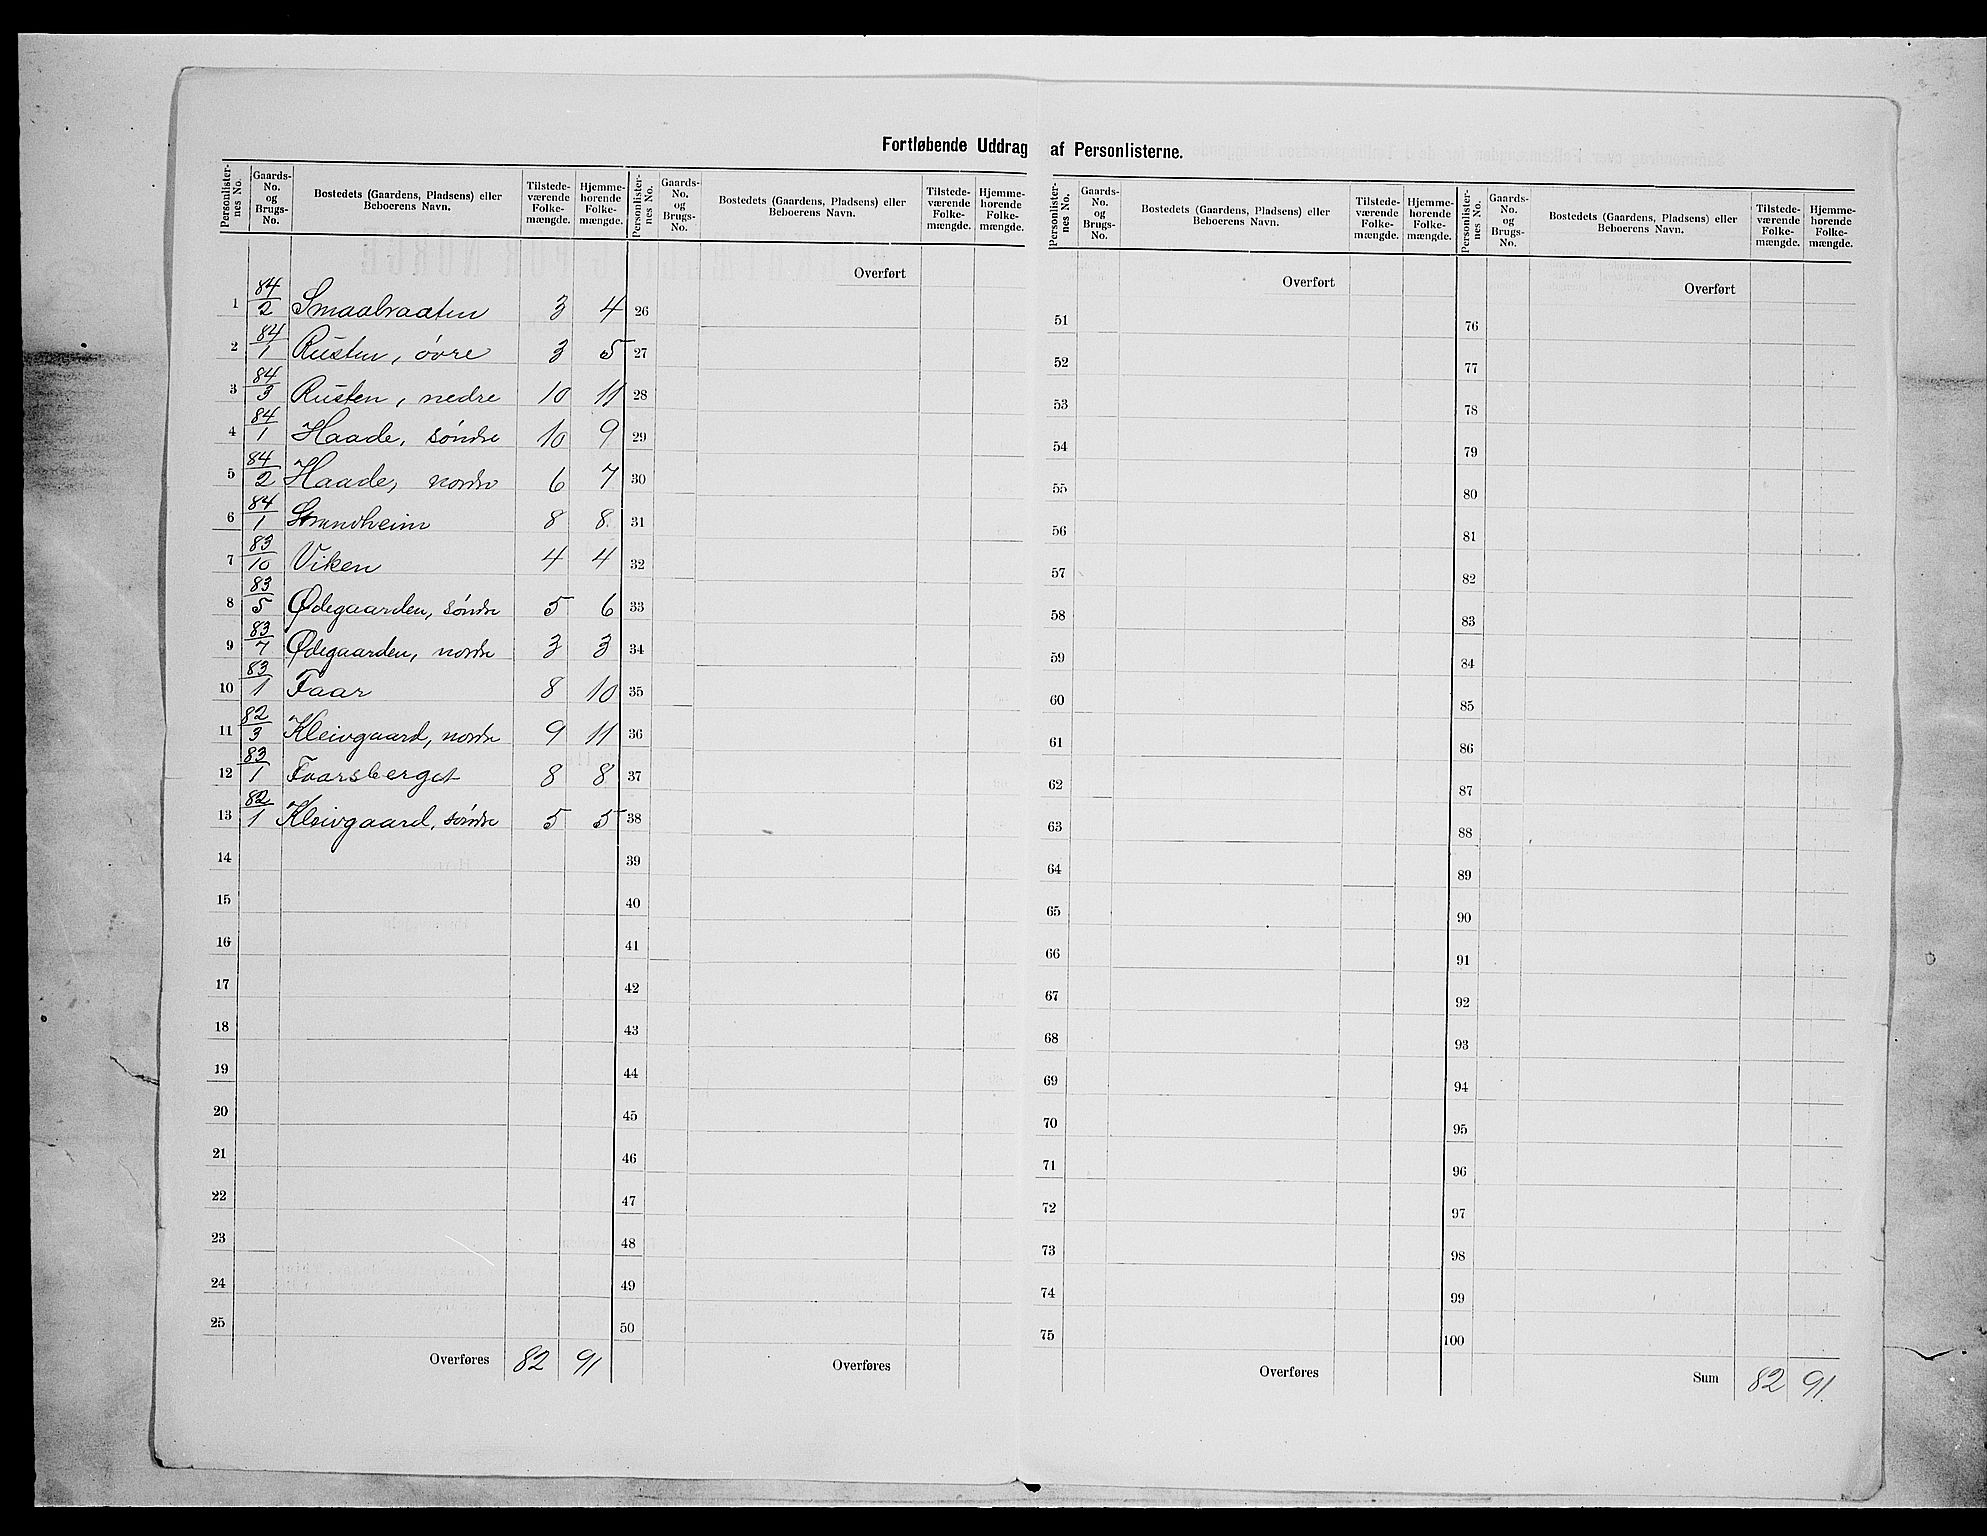 Fortløbende Uddrag af Personlisterne.
Personlister-nes No. | Gaards-No. og Brugs-No. | Bostedets (Gaardens, Pladsens) eller Beboerens Navn. | Tilstede-værende Folke-mængde. | Hjemme-hørende Folke-mængde.
1 84/2 Smaabraaten 3 4
2 84/1 Rusten, øvre 3 5
3 84/3 Rusten, nedre 10 11
4 84/1 Haade, søndre 10 9
5 84/2 Haade, nordre 6 7
6 84/1 Strandheim 8 8
7 83/10 Viken 4 4
8 83/5 Ødegaarden, søndre 5 6
9 83/7 Ødegaarden, nordre 3 3
10 83/1 Faar 8 10
11 82/3 Kleivgaard, nordre 9 11
12 83/1 Faarsberget 8 8
13 82/1 Kleivgaard, søndre 5 5
14
15
16
17
18
19
20
21
22
23
24
25
Overføres 82 91
Personlister-nes No. | Gaards-No. og Brugs-No. | Bostedets (Gaardens, Pladsens) eller Beboerens Navn. | Tilstede-værende Folke-mængde. | Hjemme-hørende Folke-mængde.
Overført
26
27
28
29
30
31
32
33
34
35
36
37
38
39
40
41
42
43
44
45
46
47
48
49
50
Overføres
Personlister-nes No. | Gaards-No. og Brugs-No. | Bostedets (Gaardens, Pladsens) eller Beboerens Navn. | Tilstede-værende Folke-mængde. | Hjemme-hørende Folke-mængde.
Overført
51
52
53
54
55
56
57
58
59
60
61
62
63
64
65
66
67
68
69
70
71
72
73
74
75
Overføres
Personlister-nes No. | Gaards-No. og Brugs-No. | Bostedets (Gaardens, Pladsens) eller Beboerens Navn. | Tilstede-værende Folke-mængde. | Hjemme-hørende Folke-mængde.
Overført
76
77
78
79
80
81
82
83
84
85
86
87
88
89
90
91
92
93
94
95
96
97
98
99
100
Sum 82 91